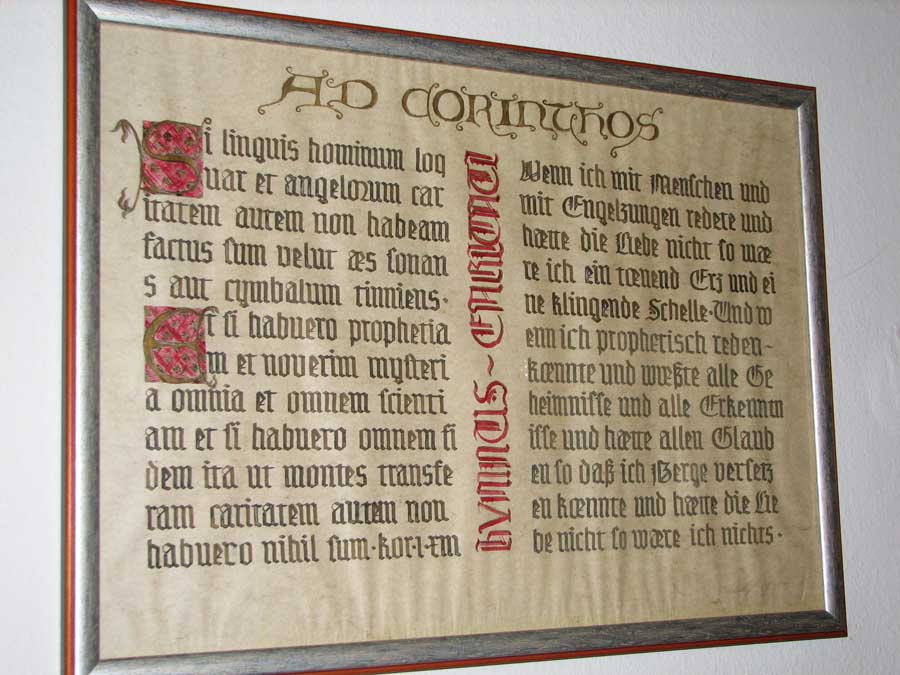 AD CORINTHOS
Si linguis hominum loq
uar et angelorum car
itatem autem non habeam
factus sum velut æs sonan
s aut cymbalum tinniens.
Et si habuero prophetia
m et noverim mysteri
a omnia et omnem scienti
am et si habuero omnem fi
dem ita ut montes transfe
ram caritatem autem non
habuero nihil sum·kor·1·xm
hVMNUS~CARITATI
Wenn ich mit Menschen und
mit Engelzungen redete und
hætte die Liebe nicht so wæ
re ich ein tœnend Erz und ei
ne klingende Schelle·Und w
enn ich prophetisch reden~
kœnnte und wüßte alle Ge
heimnisse und alle Erkenntn
isse und hætte allen Glaub
en so daß ich Berge versetz
en kœnnte und hætte die Lie
be nicht so wære ich nichts·